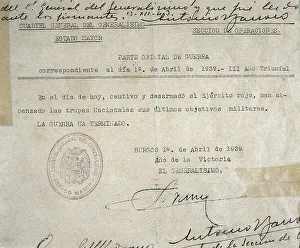 del 1er General del Generalísimo y que fue de do
CUARTEL GENERAL DEL GENERALISIMO
ESTADO MAYOR
SECCION DE OPERACIONES.
PARTE OFICIAL DE GUERRA
correspondiente al día 1º. de Abril de 1939.- III Año Triunfal
En el día de hoy, cautivo y desarmado el Ejército rojo, han al-
canzado las tropas Nacionales sus últimos objetivos militares.
LA GUERRA HA TERMINADO.
BURGOS 1º. de Abril de 1939
Año de la Victoria
EL GENERALISIMO